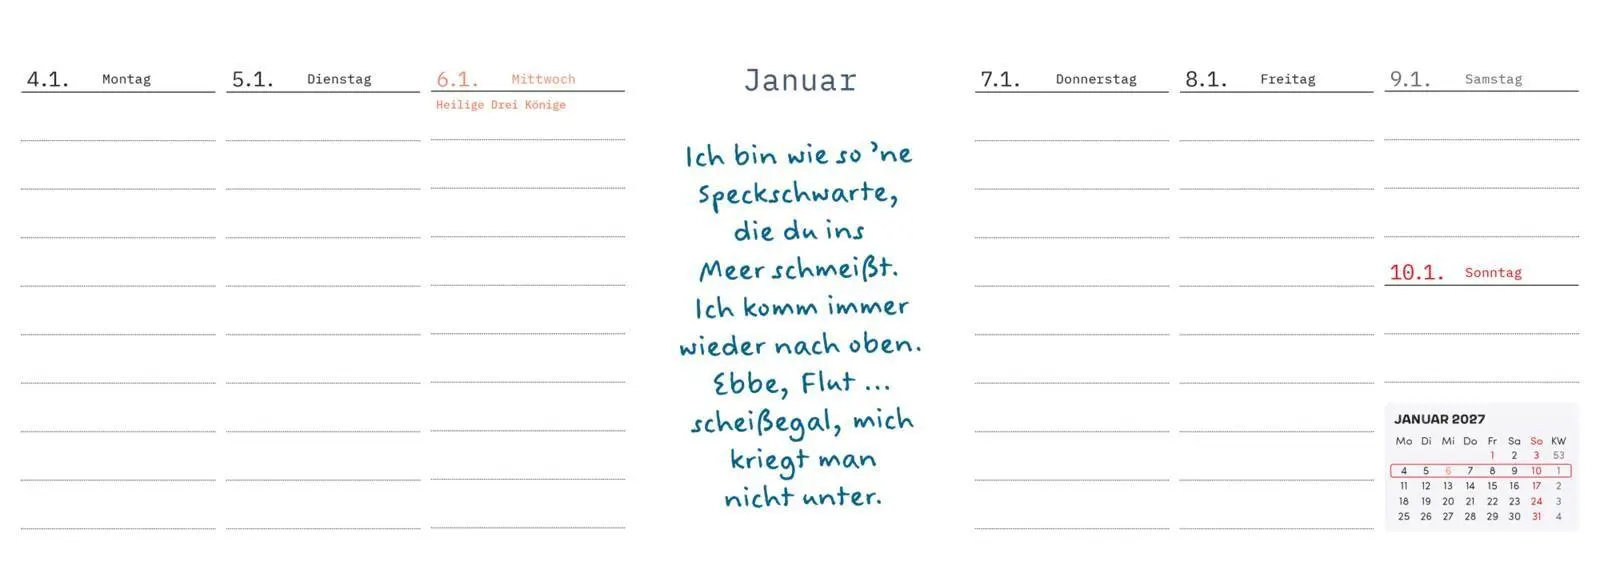 4.1. Montag
5.1. Dienstag
6.1. Mittwoch
Heilige Drei Könige
Januar
Ich bin wie so ’ne
Speckschwarte,
die du ins
Meer schmeißt.
Ich komm immer
wieder nach oben.
Ebbe, Flut ...
scheißegal, mich
kriegt man
nicht unter.
7.1. Donnerstag
8.1. Freitag
9.1. Samstag
10.1. Sonntag
JANUAR 2027
Mo Di Mi Do Fr Sa So KW
1 2 3 53
4 5 6 7 8 9 10 1
11 12 13 14 15 16 17 2
18 19 20 21 22 23 24 3
25 26 27 28 29 30 31 4